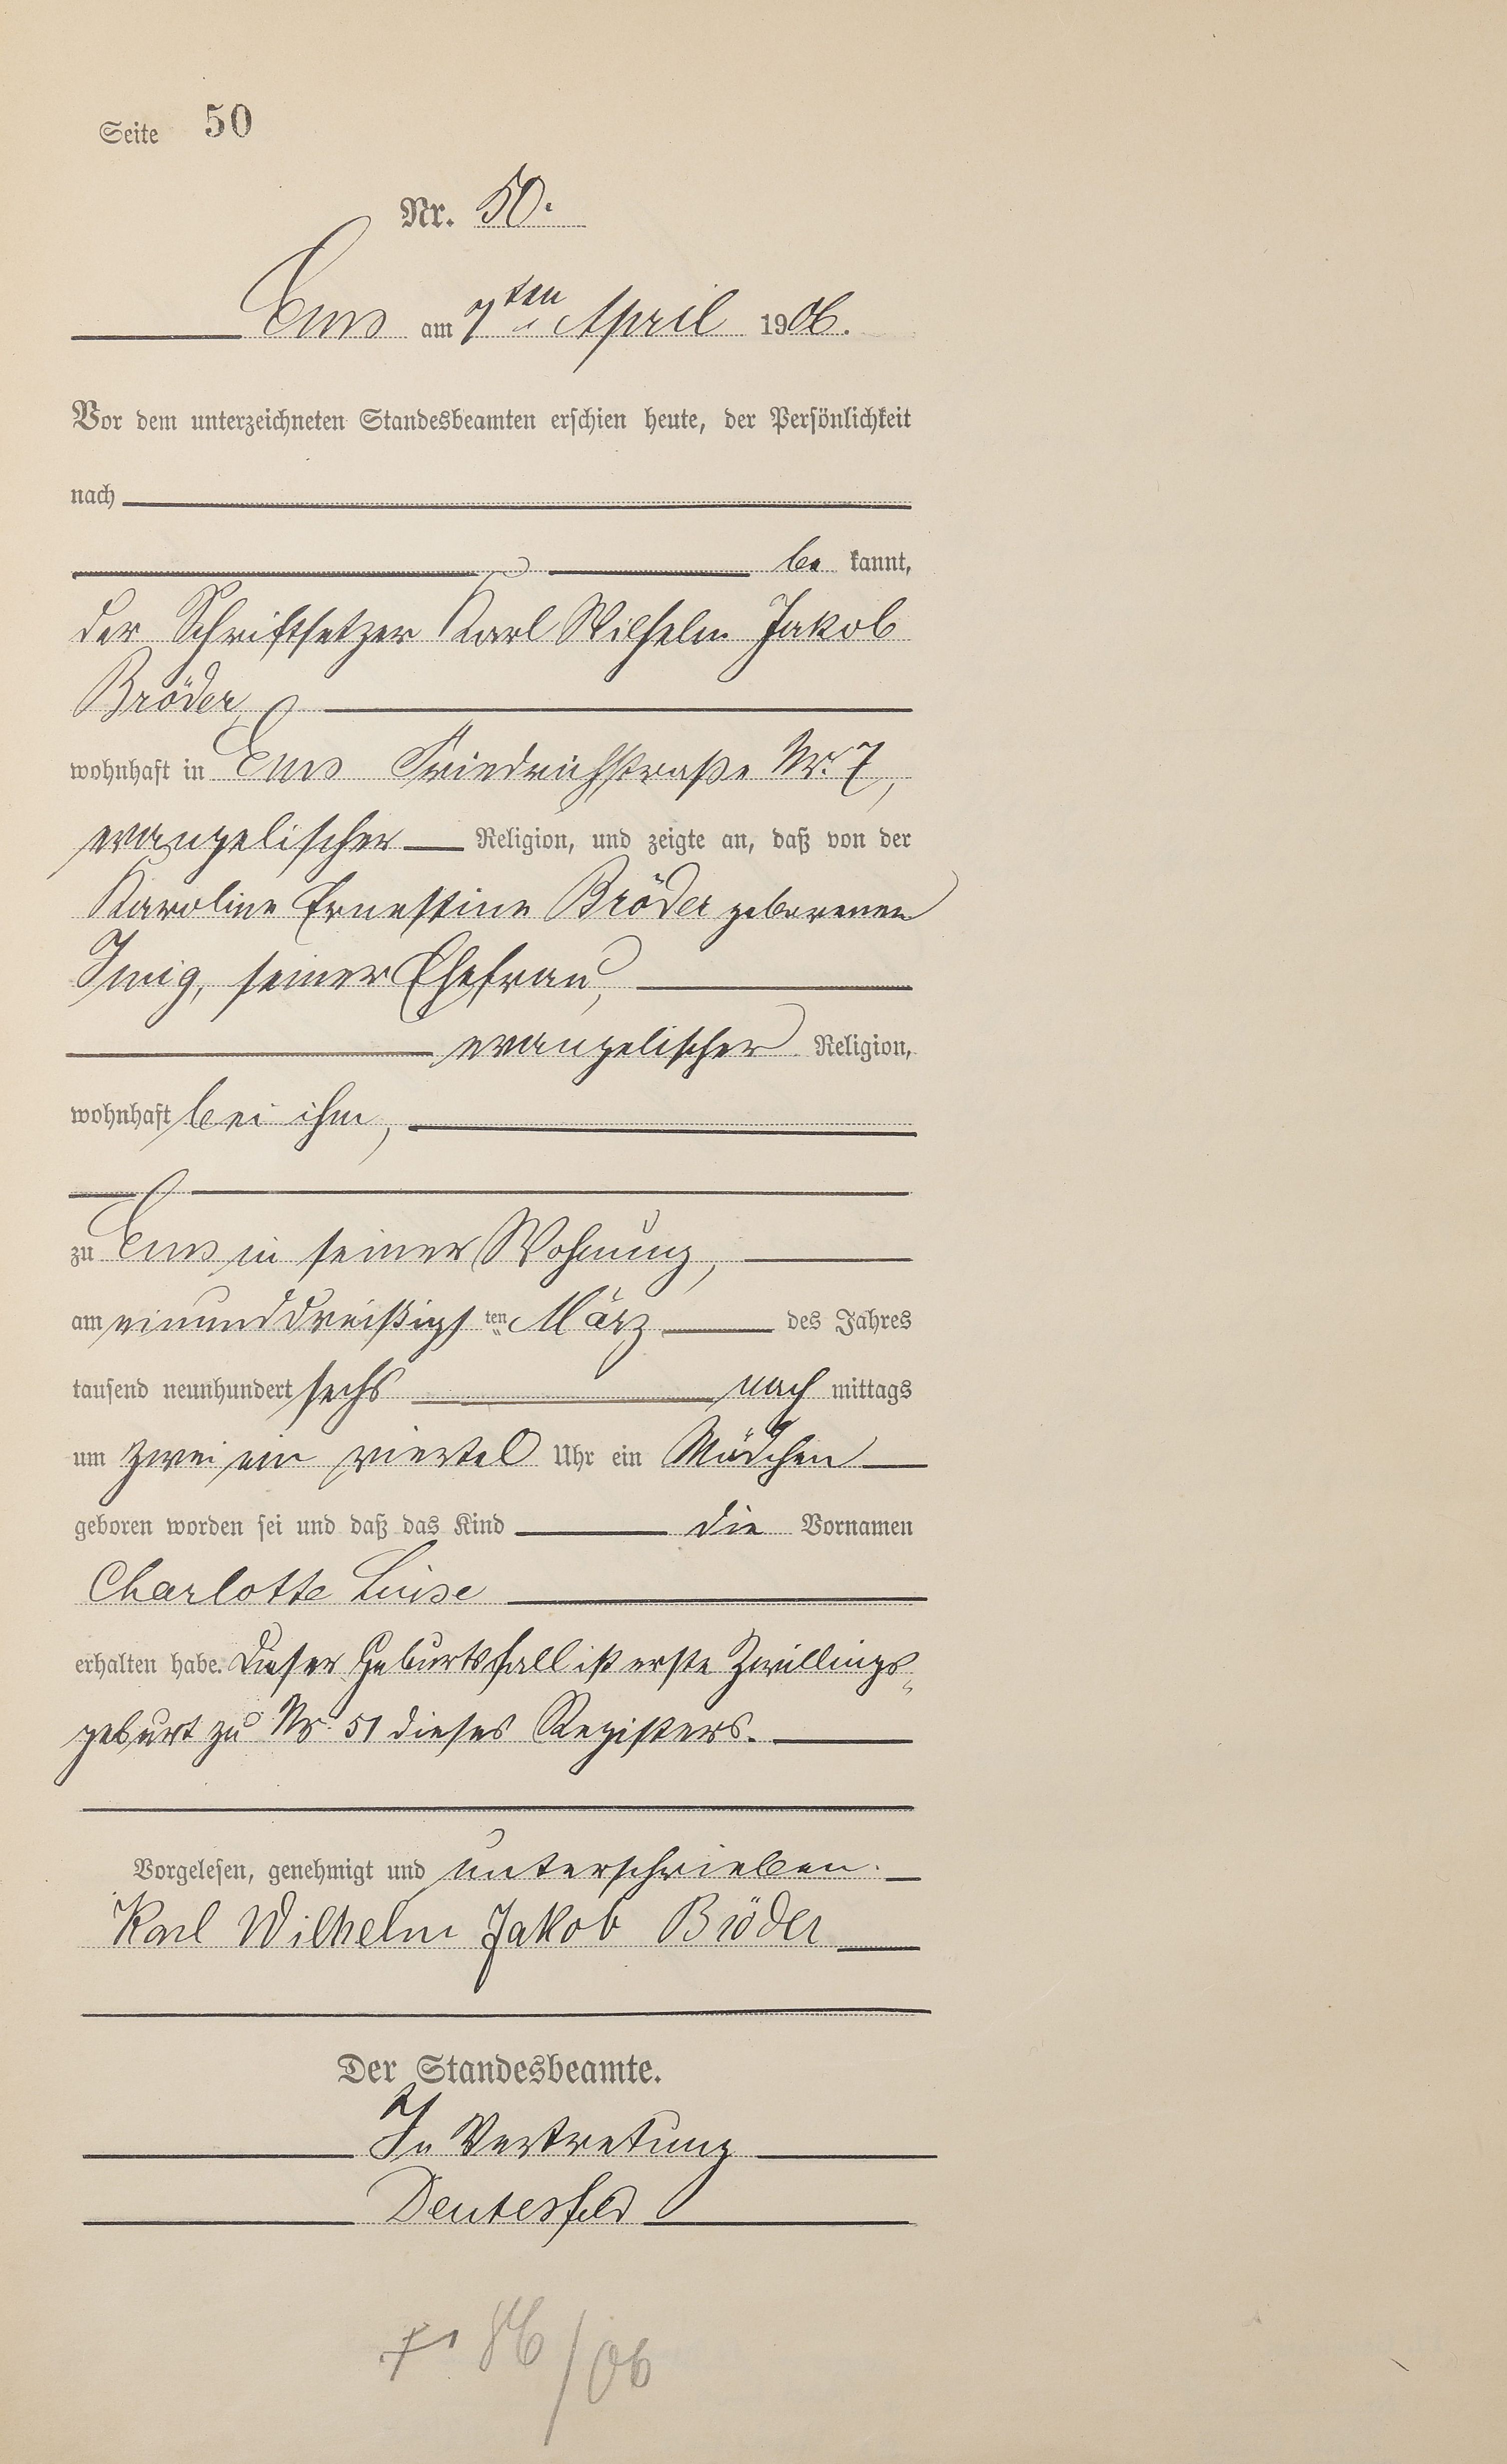 Seite 50
Nr. 50.
Ems am 7ten April 1906.
Vor dem unterzeichneten Standesbeamten erschien heute, der Persönlichkeit
nach
be kannt,
der Schriftsetzer Karl Wilhelm Jakob
Bröder,
wohnhaft in Ems Friedrichstraße Nr. 7,
evangelischer Religion, und zeigte an, daß von der
Karoline Ernestine Bröder geborenen
Imig, seiner Ehefrau,
evangelischer Religion,
wohnhaft bei ihm,
zu Ems in seiner Wohnung,
am einunddreißigsten März des Jahres
tausend neunhundert sechs nach mittags
um zwei ein viertel Uhr ein Mädchen
geboren worden sei und daß das Kind die Vornamen
Charlotte Luise
erhalten habe. Dieser Geburtsfall ist erste Zwillings-
geburt zu Nr. 51 dieses Registers.
Vorgelesen, genehmigt und unterschrieben.
Karl Wilhelm Jakob Bröder
Der Standesbeamte.
In Vertretung
Deutesfeld
86/06